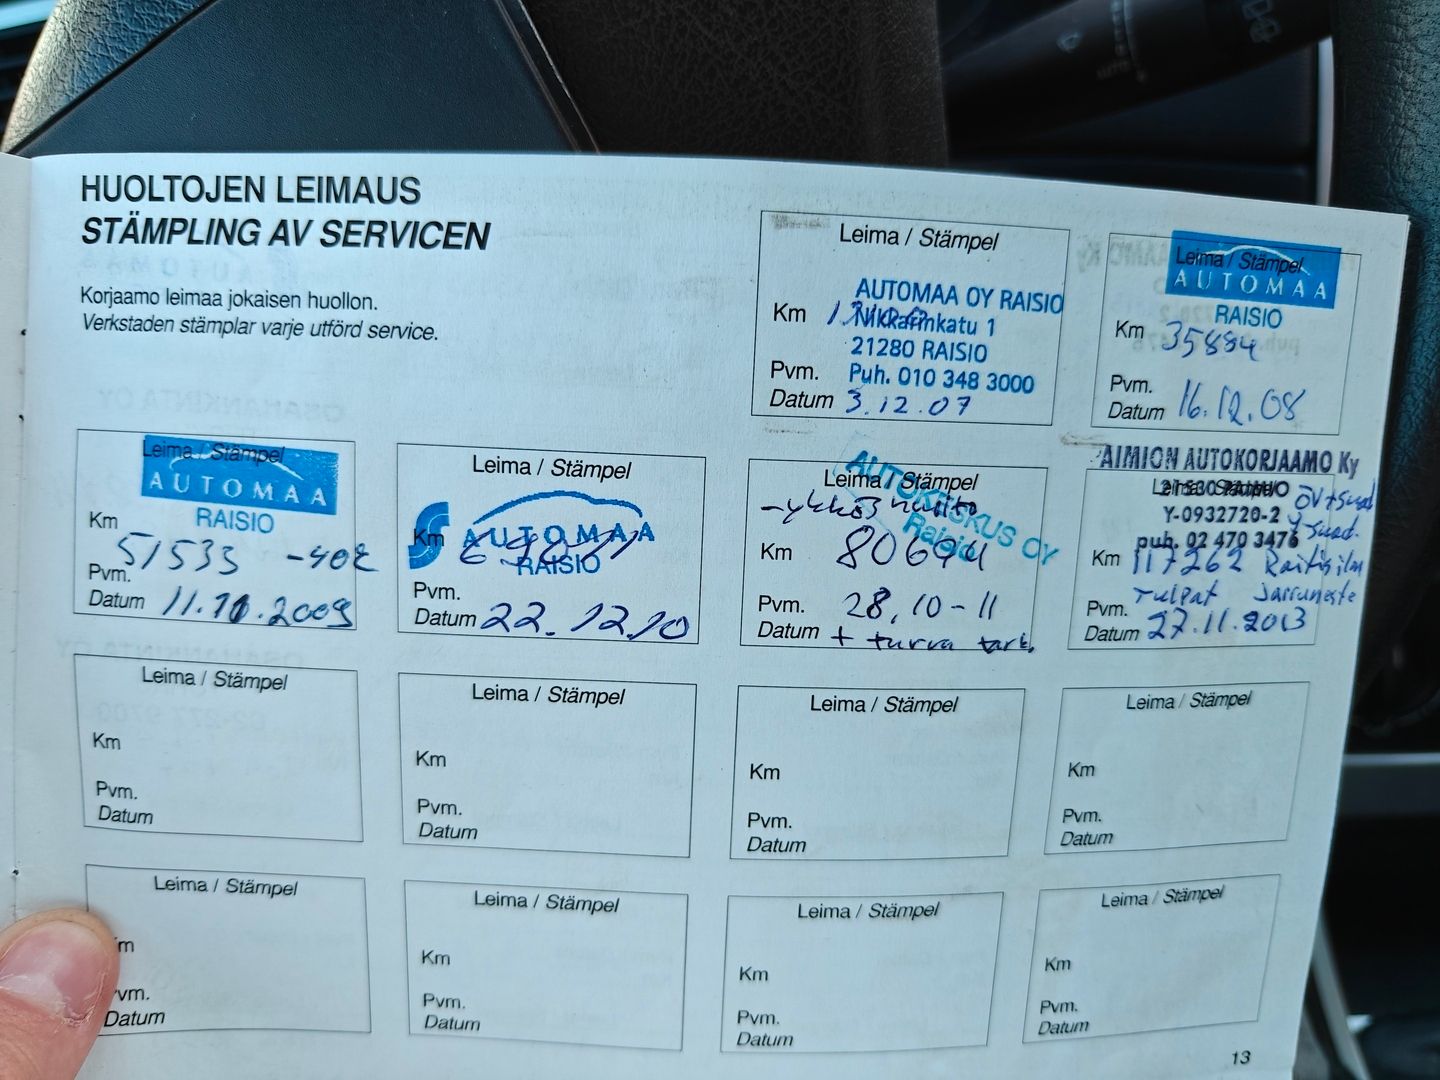 HUOLTOJEN LEIMAUS
STÄMPLING AV SERVICEN
Korjaamo leimaa jokaisen huollon.
Verkstaden stämplar varje utförd service.
Leima / Stämpel
AUTOMAA OY RAISIO
Km
Nikkarinkatu 1
21280 RAISIO
Pvm. Puh. 010 348 3000
Datum 3.12.07
Leima / Stämpel
AUTOMAA
RAISIO
Km 35884
Pvm.
Datum 16.12.08
Leima / Stämpel
AUTOMAA
RAISIO
Km 51533 -402
Pvm.
Datum 11.11.2009
Leima / Stämpel
S AUTOMAA
Km
RAISIO
Pvm.
Datum 22.12.10
Leima / Stämpel
AUTOKESKUS OY
Raisio
-ykkös huolto
Km 80694
Pvm. 28.10-11
Datum + turva tark.
AIMION AUTOKORJAAMO Ky
Leima / Stämpel
21530 PAIMIO
Y-0932720-2
puh. 02 470 3476
Km 117262 Raitisilm
tulpat Jarruneste
Pvm.
Datum 27.11.2013
Leima / Stämpel
Km
Pvm.
Datum
Leima / Stämpel
Km
Pvm.
Datum
Leima / Stämpel
Km
Pvm.
Datum
Leima / Stämpel
Km
Pvm.
Datum
Leima / Stämpel
Km
Pvm.
Datum
Leima / Stämpel
Km
Pvm.
Datum
Leima / Stämpel
Km
Pvm.
Datum
Leima / Stämpel
Km
Pvm.
Datum
13